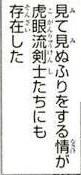 見て見ぬふりをする情が
虎眼流剣士たちにも
存在した